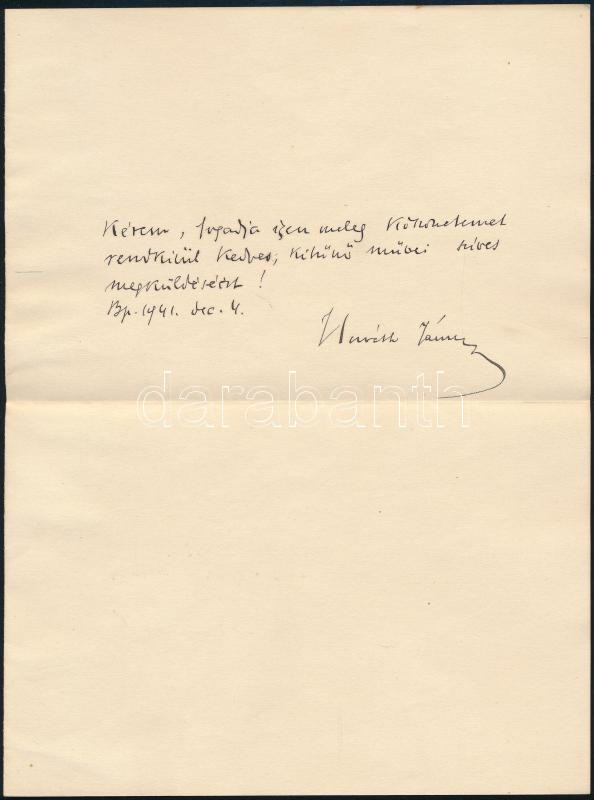 Kérem, fogadja igen meleg köszönetemet
rendkívül kedves, kitűnő művei szíves
megküldéséért!
Bp. 1941. dec. 4.
Horváth János
darabanth